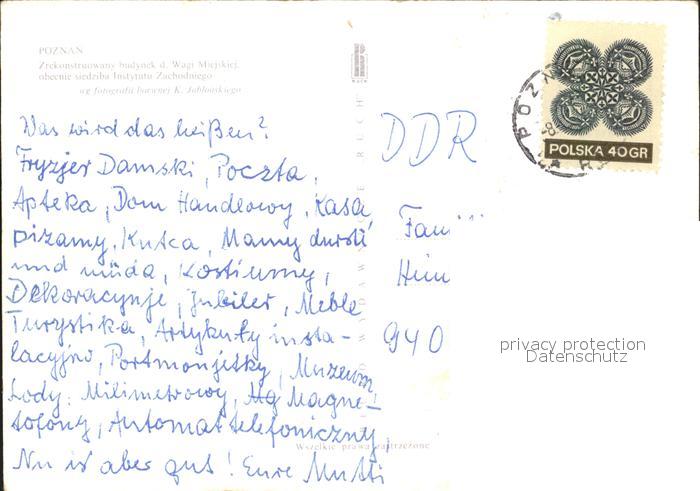 POZNAŃ
Zrekonstruowany budynek d. Wagi Miejskiej,
obecnie siedziba Instytutu Zachodniego
wg fotografii barwnej K. Jabłońskiego
Was wird das heißen?
Fryzjer Damski, Poczta,
Apteka, Dom Handlowy, Kasa,
piżamy, Kutca, Mamy durst
und müda, Kostiumy,
Dekoracynje, Jubiler, Meble
Turystika, Artykuły insta-
lacyjno, Portmonjetky, Muzeum,
Lody, Milimetrowy, Magne-
tofony, Automat telefoniczny,
Nu is aber gut! Eure Mutti
DDR
Fam
Hein
940
POLSKA 40GR
POZN
RUCH
privacy protection
Datenschutz
Wszelkie prawa zastrzeżone